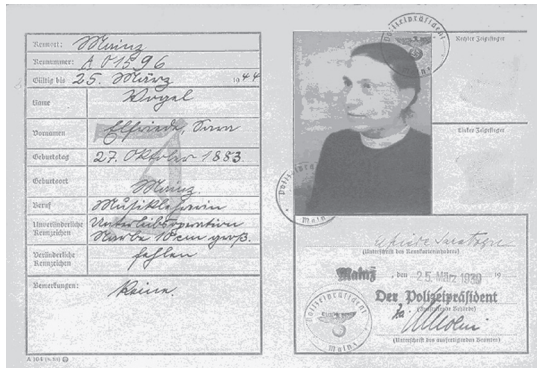 Kennort: Mainz
Kennnummer: A 01596
Gültig bis 25. März 1944
Name Vogel
Vornamen Elfriede, Sara
Geburtstag 27. Oktober 1883
Geburtsort Mainz
Beruf Musiklehrerin
Unveränderliche Kennzeichen Unterleibsoperation Narbe 10 cm groß.
Veränderliche Kennzeichen fehlen
Bemerkungen: Keine.
Polizeipräsident
Mainz
Rechter Zeigefinger
Linker Zeigefinger
Polizeipräsident
Mainz
(Unterschrift des Kennkarteninhabers)
Mainz, den 25. März 1939 19
Der Polizeipräsident
(Ausfertigende Behörde)
Polizeipräsident
Mainz
(Unterschrift des ausfertigenden Beamten)